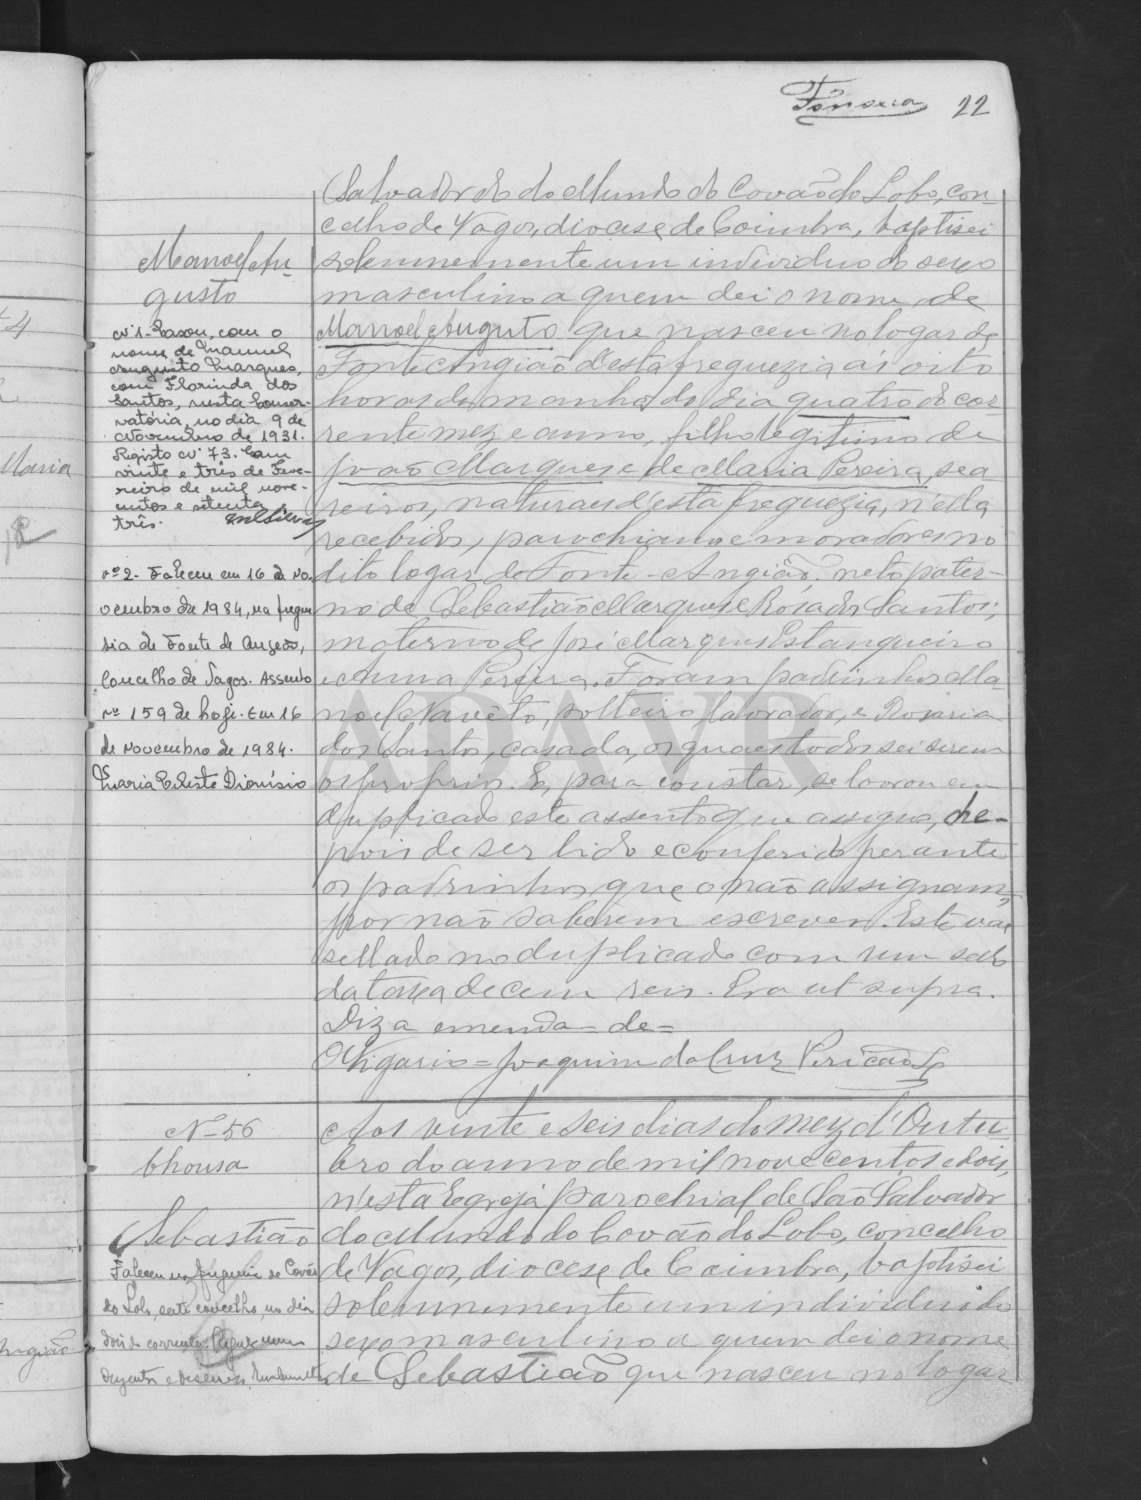 Fonseca 22
Salvador do do Mundo do Covão do Lobo, con-
celho de Vagos, diocese de Coimbra, baptisei
solemnemente um individuo do sexo
masculino a quem dei o nome de
Manoel Augusto que nasceu no logar de
Fonte Angião d'esta freguezia ás oito
horas da manhã do dia quatro do cor-
rente mez e anno, filho legitimo de
João Marques e de Maria Pereira, sea-
reiros, naturaes d'esta freguezia, n'ella
recebidos, parochianos e moradores no
dito logar de Fonte-Angião, neto pater-
no de Sebastião Marques e Rosa dos Santos;
materno de José Marques Estanqueiro
e Anna Pereira. Foram padrinhos Ma-
noel Neto, solteiro, lavrador, e Rosaria
dos Santos, casada, os quaes todos sei serem
os proprios. E, para constar, se lavrou em
duplicado este assento que assigno, de-
pois de ser lido e conferido perante
os padrinhos, que o não assignam,
por não saberem escrever. Este vae
sellado no duplicado com um sello
da taxa de cem reis. Era ut supra.
Diz a emenda = de =
O Vigario = Joaquim da Cruz Pericão
Manoel Au-
gusto
Nº 1 - Casou, com o
nome de Manuel
Augusto Marques,
com Florinda dos
Santos, nesta Conser-
vatória, no dia 9 de
Novembro de 1931.
Registo Nº 73. Em
vinte e três de Feve-
reiro de mil nove-
centos e setenta e
três.
Nº 2 - Faleceu em 16 de No-
vembro de 1984, na fregue
sia de Fonte de Angeão,
Concelho de Vagos. Assento
nº 159 de hoje. Em 16
de Novembro de 1984.
Maria Celeste Dionísio
ADAVR
Nº 56
Chousa
Sebastião
Faleceu na freguesia de Covão
do Lobo, deste concelho, no dia
dois do corrente.
Aos vinte e seis dias do mez d'Outu-
bro do anno de mil novecentos e dois,
n'esta Egreja parochial de São Salvador
do Mundo do Covão do Lobo, concelho
de Vagos, diocese de Coimbra, baptisei
solemnemente um individuo do
sexo masculino a quem dei o nome
de Sebastião que nasceu no logar
Maria